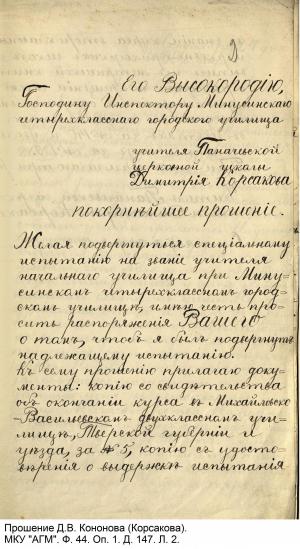 Его Высокородію,
Господину Инспектору Минусинскаго
четырехкласснаго городского училища
учителя Паначевской
церковной школы
Димитрія Корсакова
покорнѣйшее прошеніе.
Желая подвергнуться спеціальному
испытанію на званіе учителя
начальнаго училища при Мину-
синскомъ четырехклассномъ город-
скомъ училищѣ, имѣю честь про-
сить распоряженія Вашего
о томъ, чтобъ я былъ подвергнутъ
надлежащему испытанію.
Къ сему прошенію прилагаю доку-
менты: копію со свидѣтельства
объ окончаніи курса въ Михайловско
-Васильевскомъ двухклассномъ учи-
лищѣ, Тверской губерніи и
уѣзда, за № 5, копію съ удосто-
вѣренія о выдержкѣ испытанія
Прошение Д.В. Кононова (Корсакова).
МКУ "АГМ". Ф. 44. Оп. 1. Д. 147. Л. 2.